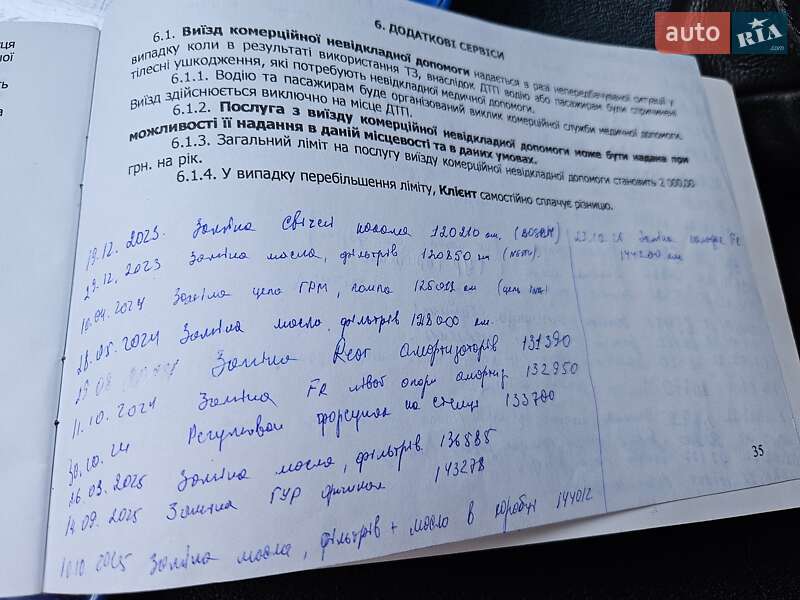 auto RIA
.com
6. ДОДАТКОВІ СЕРВІСИ
6.1. Виїзд комерційної невідкладної допомоги надається в разі непередбачуваної ситуації у
випадку коли в результаті використання ТЗ, внаслідок ДТП водію або пасажирам були спричинені
тілесні ушкодження, які потребують невідкладної медичної допомоги.
6.1.1. Водію та пасажирам буде організований виклик комерційної служби медичної допомоги.
Виїзд здійснюється виключно на місце ДТП.
6.1.2. Послуга з виїзду комерційної невідкладної допомоги може бути надана при
можливості її надання в даній місцевості та в даних умовах.
6.1.3. Загальний ліміт на послугу виїзду комерційної невідкладної допомоги становить 2 000,00
грн. на рік.
6.1.4. У випадку перебільшення ліміту, Клієнт самостійно сплачує різницю.
19.12.2023. Заміна свічей 120210 км. (BOSCH)
29.12.2023 Заміна масла, фільтрів 120850 км
10.04.2024 Заміна цепа ГРМ, помпа 125022 км
28.05.2024 Заміна масла, фільтрів 128000 км.
Заміна Rear амортизаторів 131390
11.10.2024 Заміна FR лівої опори амортиз 132950
30.10.24 форсунок на стенді 133700
26.03.2025 Заміна масла, фільтрів. 136585
14.09.2025 Заміна ГУР 143278
10.10 2025 Заміна масла, фільтрів + масло в коробці 144012
Заміна FR
144200 км
35